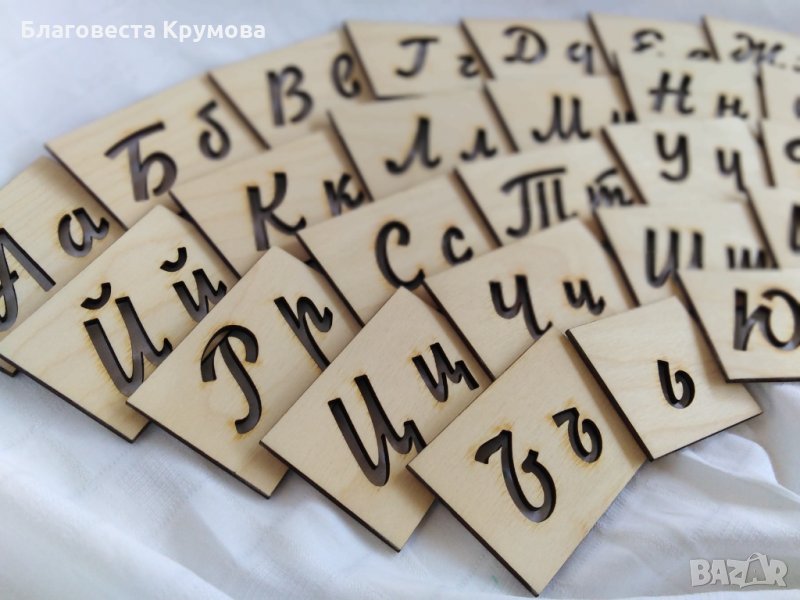 Благовеста Крумова
А а Б б В в Г г Д д Е Ж
Й й К к Л л М м Н н
Р р С с Т т У у
Ц ц Ч ч Ш ш
Ъ ъ ь Ю
BAZAR